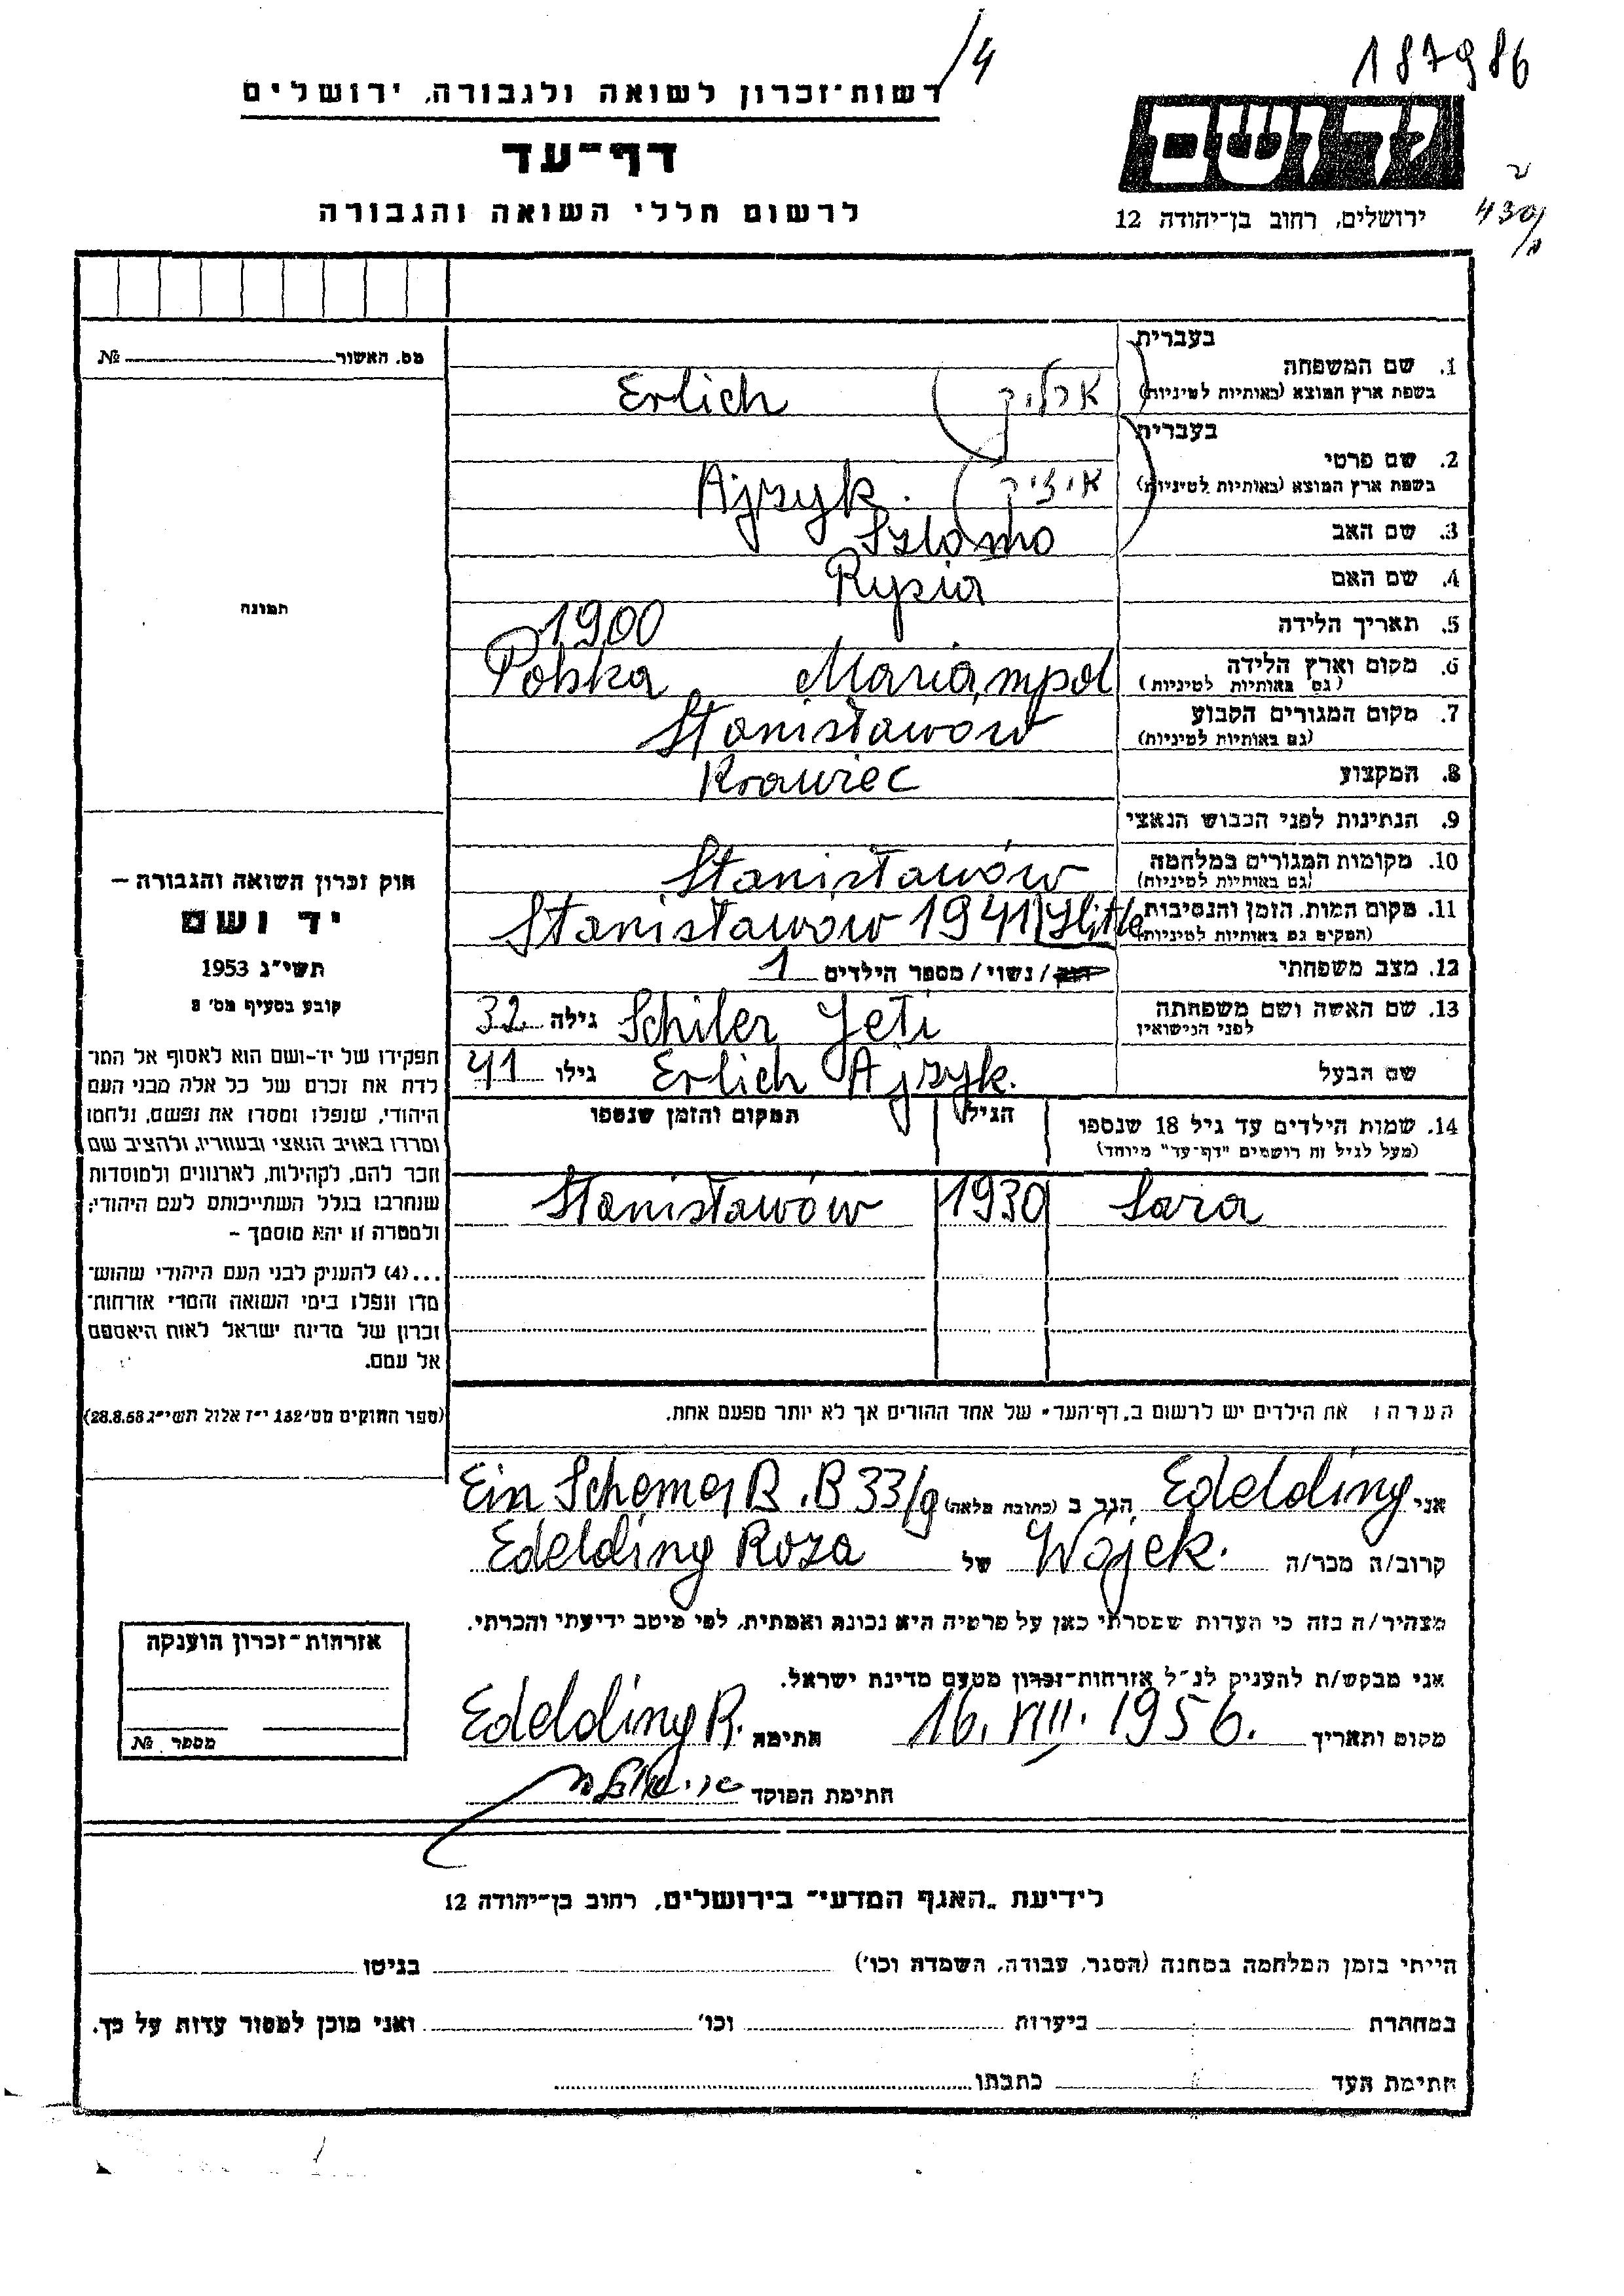 /4
187986
רשות־זכרון לשואה ולגבורה, ירושלים
דף־עד
לרשום חללי השואה והגבורה
ידושם
ירושלים, רחוב בן־יהודה 12
430/
מס. האשור № 
בעברית
1. שם המשפחה
בשפת ארץ המוצא (באותיות לטיניות)
Erlich (ארליך
בעברית
2. שם פרטי
בשפת ארץ המוצא (באותיות לטיניות)
Ajzyk. (איזיק
3. שם האב Szlomo
4. שם האם Rysia
5. תאריך הלידה 1900
6. מקום וארץ הלידה
(גם באותיות לטיניות)
Polska Mariampol
7. מקום המגורים הקבוע
(גם באותיות לטיניות)
Stanisławów
8. המקצוע Krawiec
9. הנתינות לפני הכבוש הנאצי
10. מקומות המגורים במלחמה
(גם באותיות לטיניות)
Stanisławów
11. מקום המות, הזמן והנסיבות
(המקום גם באותיות לטיניות)
Stanisławów 1941
12. מצב משפחתי
רווק / נשוי / מספר הילדים 1
13. שם האשה ושם משפחתה
לפני הנישואין
Schiler Jeti גילה 32
שם הבעל Erlich Ajzyk. גילו 41
14. שמות הילדים עד גיל 18 שנספו
(מעל לגיל זה רושמים "דף־עד" מיוחד)
הגיל
המקום והזמן שנספו
Sara 1930 Stanisławów
הערה: את הילדים יש לרשום ב„דף־העד" של אחד ההורים אך לא יותר מפעם אחת.
תמונה
חוק זכרון השואה והגבורה –
יד ושם
תשי"ג 1953
קובע בסעיף מס' 2
תפקידו של יד־ושם הוא לאסוף אל המו־
לדת את זכרם של כל אלה מבני העם
היהודי, שנפלו ומסרו את נפשם, נלחמו
ומרדו באויב הנאצי ובעוזריו, ולהציב שם
וזכר להם, לקהילות, לארגונים ולמוסדות
שנחרבו בגלל השתייכותם לעם היהודי;
ולמטרה זו יהא מוסמך –
...(4) להעניק לבני העם היהודי שהוש־
מדו ונפלו בימי השואה והמרי אזרחות־
זכרון של מדינת ישראל לאות היאספם
אל עמם.
(ספר החוקים מס' 132 י"ז אלול תשי"ג 28.8.53)
אני Edelding הגר ב (כתובת מלאה) Ein Schemer B.B 33/9
קרוב/ה מכר/ה Wójek. של Edelding Roza
מצהיר/ה בזה כי העדות שמסרתי כאן על פרטיה היא נכונה ואמתית, לפי מיטב ידיעתי והכרתי.
אני מבקש/ת להעניק לנ"ל אזרחות־זכרון מטעם מדינת ישראל.
מקום ותאריך 16. VIII. 1956. חתימה Edelding R.
חתימת הפוקד
אזרחות־זכרון הוענקה
מספר №
לידיעת „האגף המדעי" בירושלים, רחוב בן־יהודה 12
הייתי בזמן המלחמה במחנה (הסגר, עבודה, השמדה וכו') בגיטו
במחתרת ביערות וכו' ואני מוכן למסור עדות על כך.
חתימת העד כתבתו